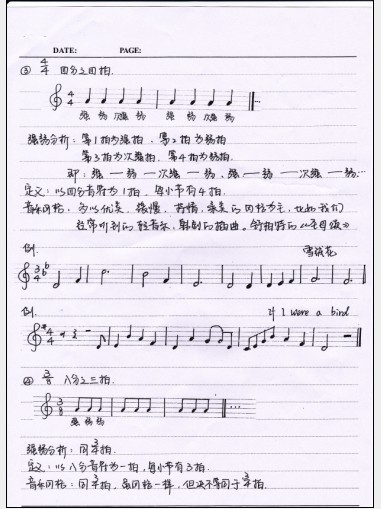 DATE: PAGE:
③ 4/4 四分之四拍.
4/4
强 弱 次强 弱 强 弱 次强 弱
强弱分析: 第1拍为强拍, 第2拍为弱拍
第3拍为次强拍, 第4拍为弱拍.
即: 强 — 弱 — 次强 — 弱, 强 — 弱 — 次强 — 弱…
定义: 以四分音符为1拍, 每小节有4拍.
音乐风格: 多以优美、缓慢、抒情、柔美的风格为主, 比如我们
经常听到的轻音乐, 舒伯特的《圣母颂》
例. 雪绒花
3/4
例. If I were a bird
4/4
④ 3/8 八分之三拍.
3/8
强 弱 弱
强弱分析: 同3/4拍.
定义: 以八分音符为一拍, 每小节有3拍.
音乐风格: 同3/4拍. 虽风格一样, 但决不等同于3/4拍.